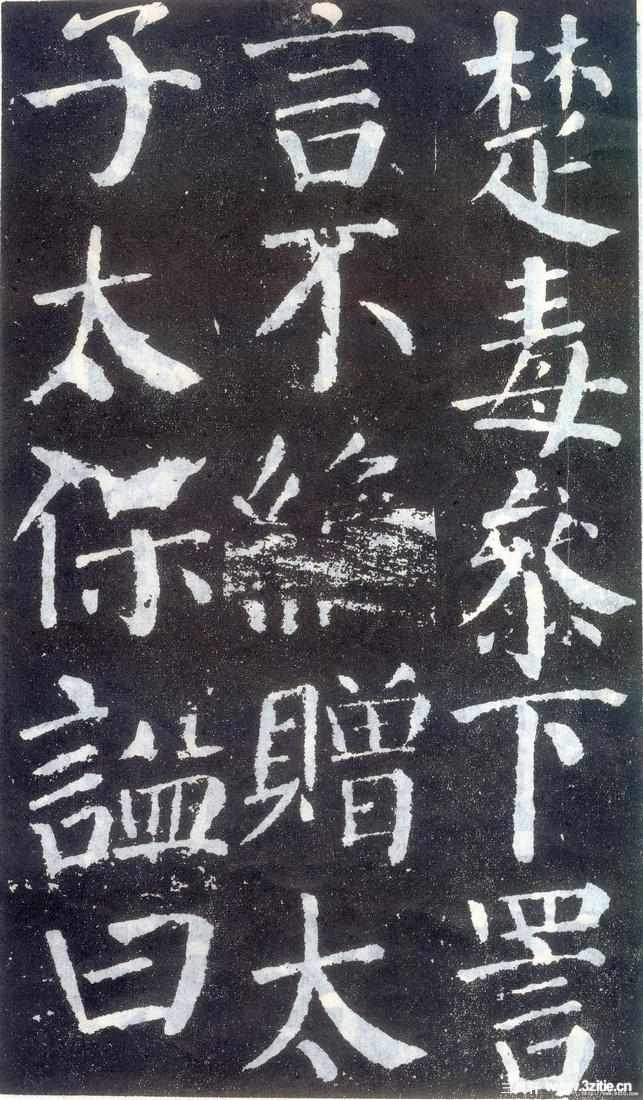 楚毒參下詈
言不絶贈太
子太保謚曰
www.3zitie.cn